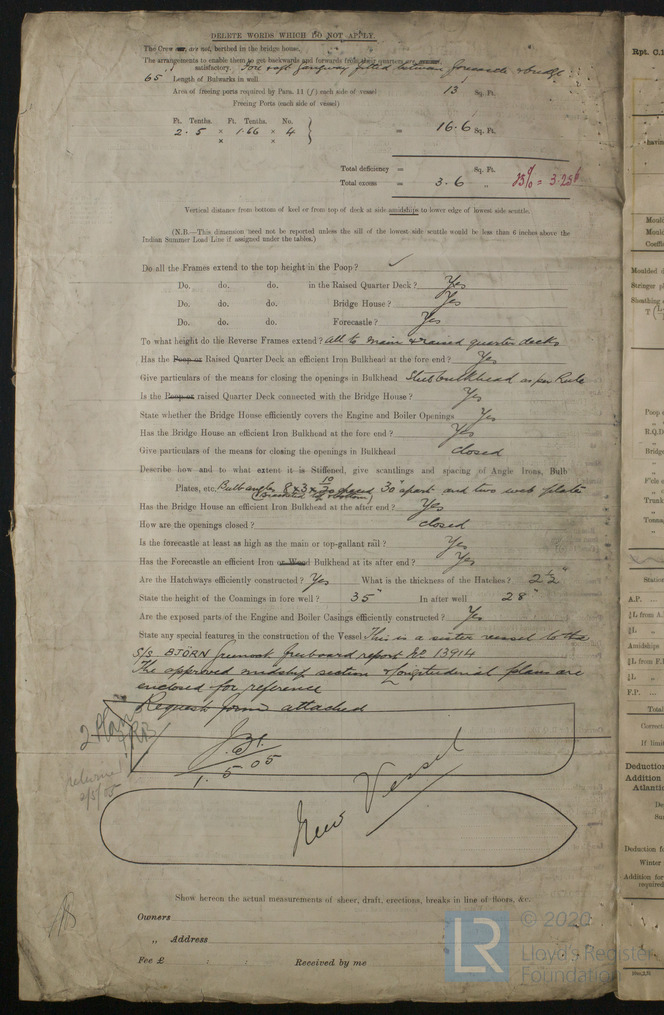 DELETE WORDS WHICH DO NOT APPLY.
The Crew are, are not, berthed in the bridge house.
The arrangements to enable them to get backwards and forwards from their quarters are
satisfactory. Fore & aft gangway fitted between forecastle & bridge
65 Length of Bulwarks in well.
Area of freeing ports required by Para. 11 (f) each side of vessel 13 Sq. Ft.
Freeing Ports (each side of vessel)
Ft. Tenths. Ft. Tenths. No.
2.5 × 1.66 × 4 } = 16.6 Sq. Ft.
× ×
Total deficiency = Sq. Ft.
Total excess = 3.6 " 25% = 3.25
Vertical distance from bottom of keel or from top of deck at side amidships to lower edge of lowest side scuttle.
(N.B.—This dimension need not be reported unless the sill of the lowest side scuttle would be less than 6 inches above the
Indian Summer Load Line if assigned under the tables.)
Do all the Frames extend to the top height in the Poop? ✓
Do. do. do. in the Raised Quarter Deck? Yes
Do. do. do. Bridge House? Yes
Do. do. do. Forecastle? Yes
To what height do the Reverse Frames extend? All to main & raised quarter decks
Has the Poop or Raised Quarter Deck an efficient Iron Bulkhead at the fore end? Yes
Give particulars of the means for closing the openings in Bulkhead Steel bulkhead as per Rule
Is the Poop or raised Quarter Deck connected with the Bridge House? Yes
State whether the Bridge House efficiently covers the Engine and Boiler Openings Yes
Has the Bridge House an efficient Iron Bulkhead at the fore end? Yes
Give particulars of the means for closing the openings in Bulkhead closed
Describe how and to what extent it is Stiffened, give scantlings and spacing of Angle Irons, Bulb
Plates, etc. Bulb angles 8 × 3 × 10/20 spaced 30" apart and two web plates
(Bracketed top & bottom)
Has the Bridge House an efficient Iron Bulkhead at the after end? Yes
How are the openings closed? closed
Is the forecastle at least as high as the main or top-gallant rail? Yes
Has the Forecastle an efficient Iron or Wood Bulkhead at its after end? Yes
Are the Hatchways efficiently constructed? Yes What is the thickness of the Hatches? 2½"
State the height of the Coamings in fore well? 35" In after well 28"
Are the exposed parts of the Engine and Boiler Casings efficiently constructed? Yes
State any special features in the construction of the Vessel This is a sister vessel to the
S/S BJÖRN freeboard report No 13914
The approved midship section & Longitudinal plans are
enclosed for reference
Request form attached
2 Plans
1.5.05
returned
New Vessel
Show hereon the actual measurements of sheer, draft, erections, breaks in line of floors, &c.
Owners
" Address
Fee £ : : Received by me
© 2020
LR
Lloyd's Register
Foundation
Rpt. C.
Stringer pl
Sheathing
Poop
R.Q.D.
Bridge
Trunk
Tonna
Station
A.P. ...
Amidships
F.P. ...
Total
Correct
If limit
Deduction
Addition
Atlantic
Deduction fo
Winter
Addition for
required